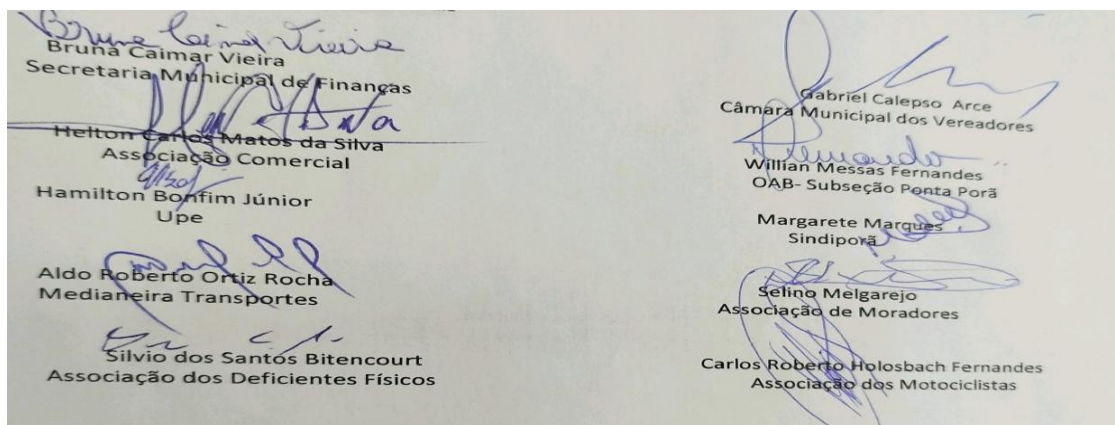 Bruna Caimar Vieira
Bruna Caimar Vieira
Secretaria Municipal de Finanças
Helton Carlos Matos da Silva
Associação Comercial
Hamilton Bonfim Júnior
Upe
Aldo Roberto Ortiz Rocha
Medianeira Transportes
Silvio dos Santos Bitencourt
Associação dos Deficientes Físicos
Gabriel Calepso Arce
Câmara Municipal dos Vereadores
Willian Messas Fernandes
OAB- Subseção Ponta Porã
Margarete Marques
Sindiporã
Selino Melgarejo
Associação de Moradores
Carlos Roberto Holosbach Fernandes
Associação dos Motociclistas